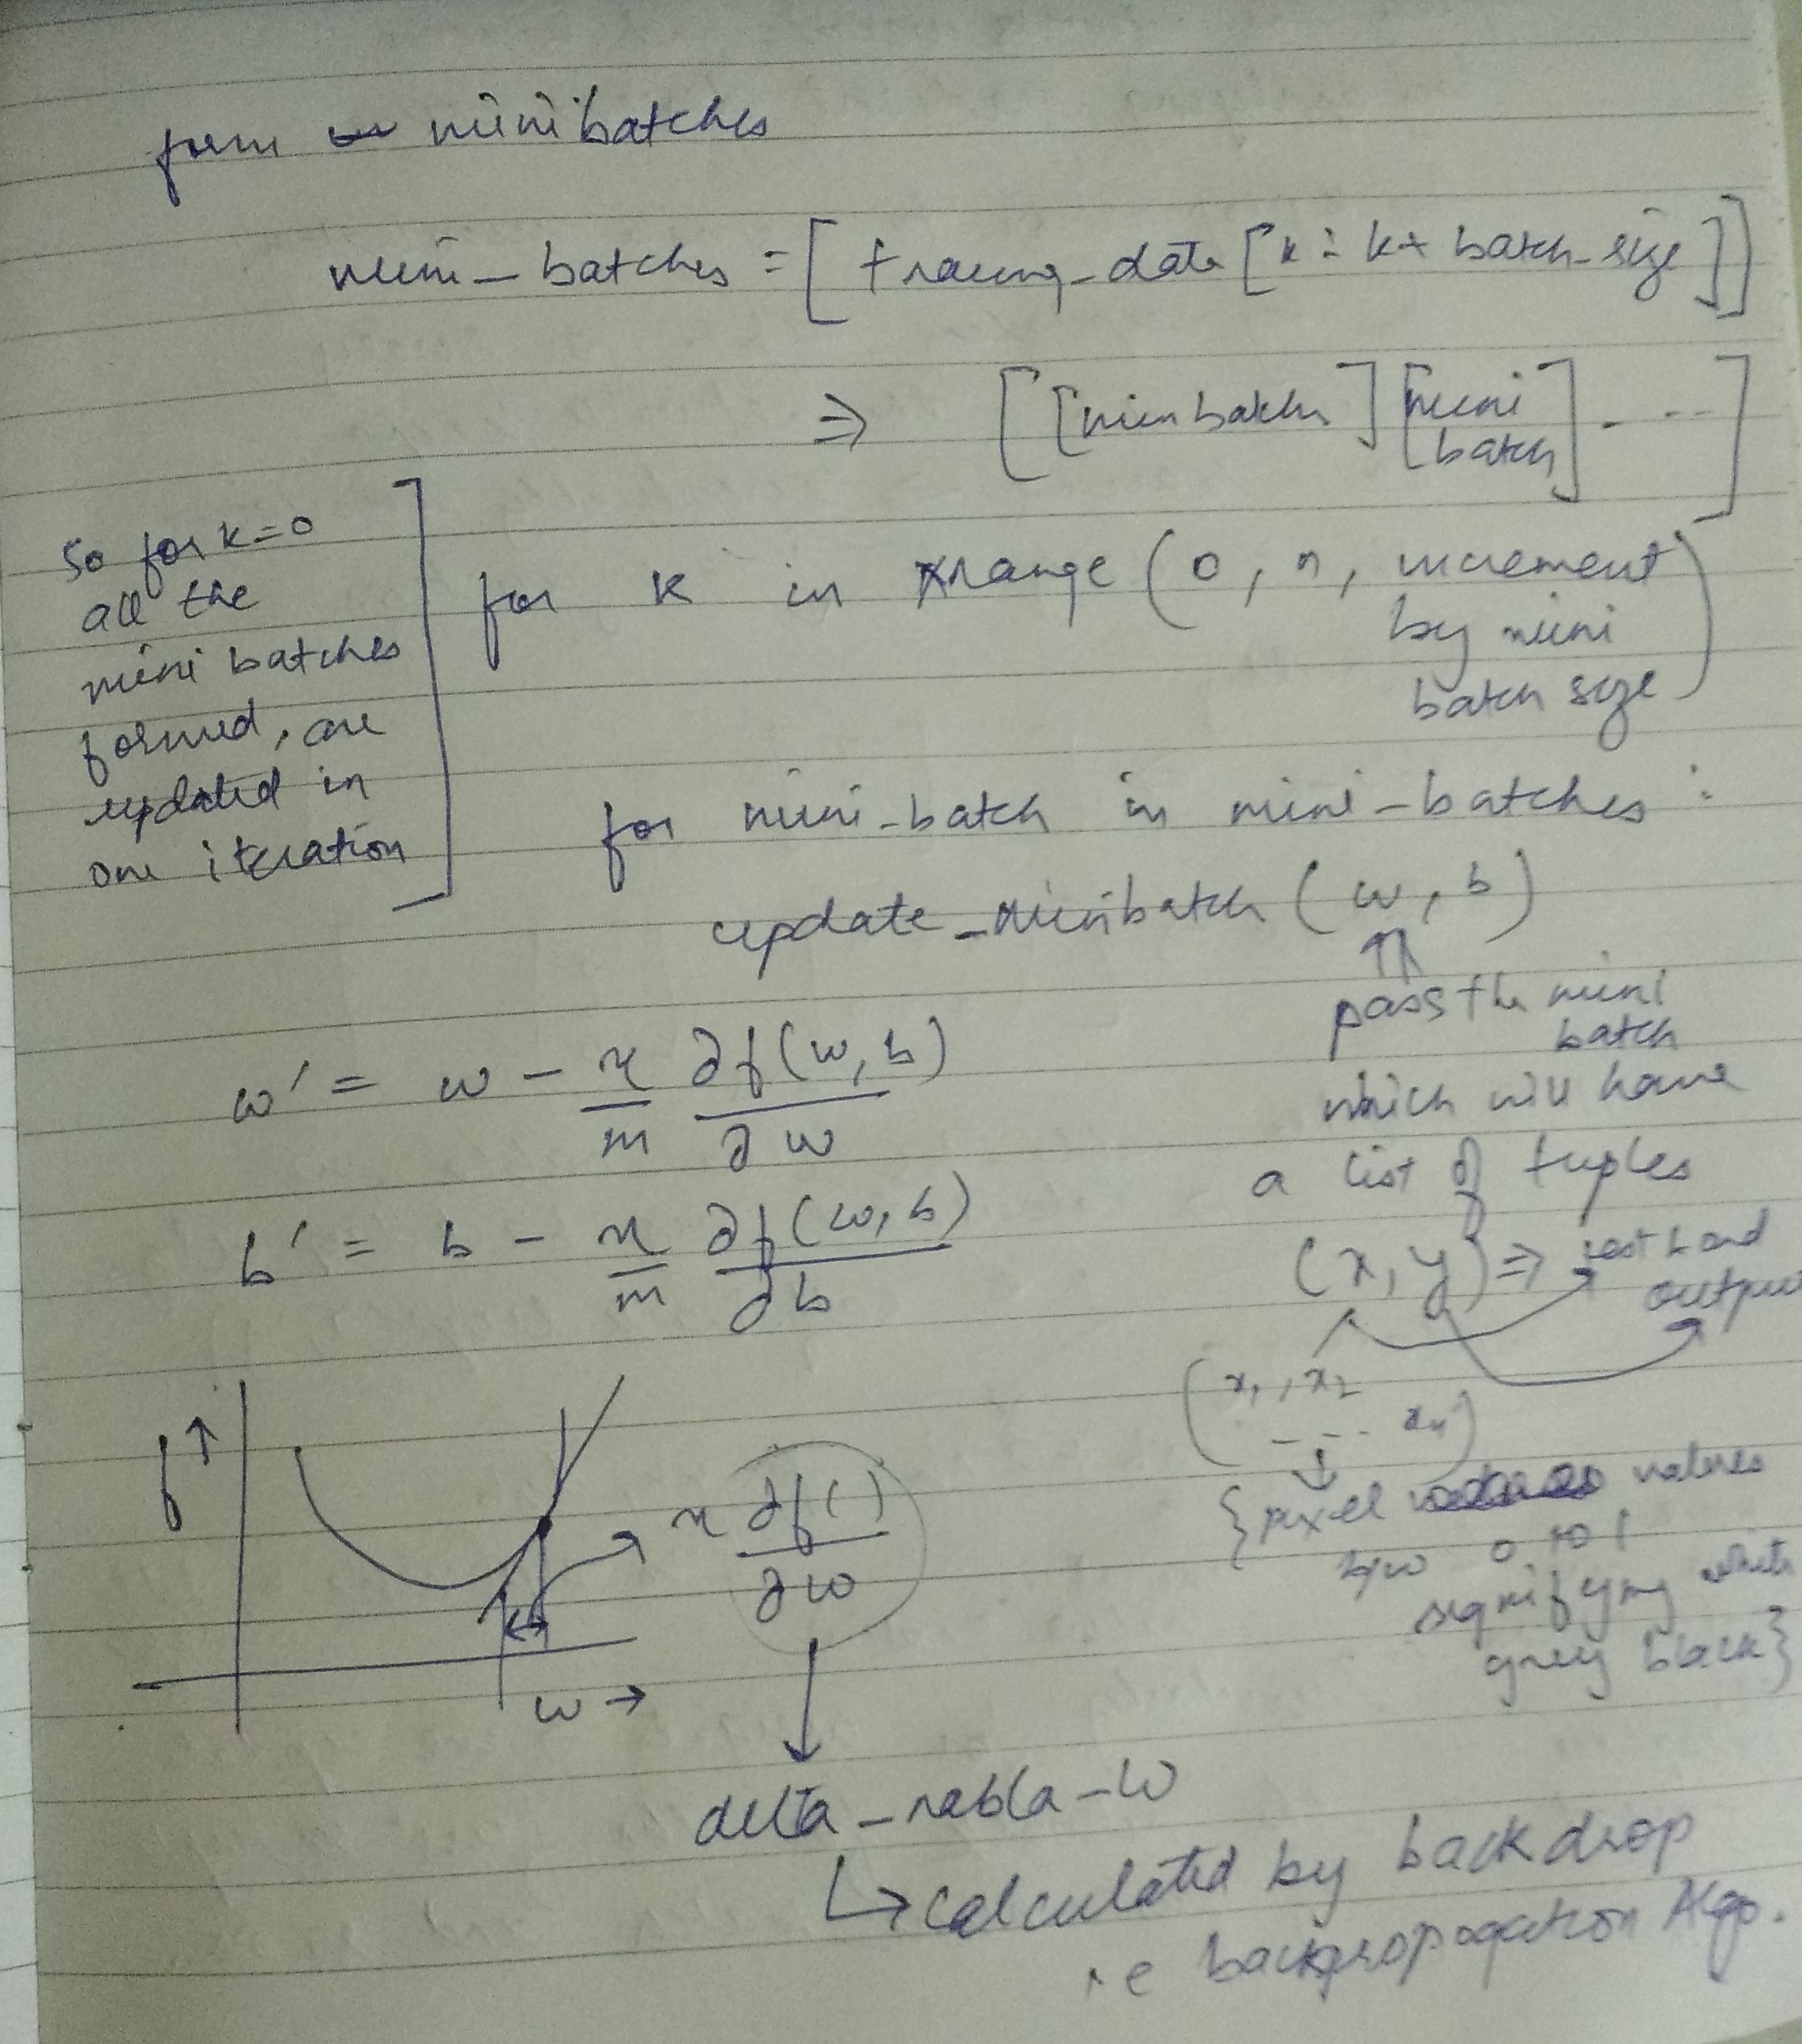 form minibatches
mini_batches = [ training_data [ k : k + batch_size ] ]
⇒ [ [ minibatch ] [ mini batch ] . - -- ]
So for k=0
all the
mini batches
formed, are
updated in
one iteration
for k in xrange ( 0, n, increment
by mini
batch size )
for mini_batch in mini-batches :
update_minibatch ( w, b )
pass the mini
batch
which will have
a list of tuples
(x, y) ⇒ output
w' = w - η/m ∂f(w,b)/∂w
b' = b - η/m ∂f(w,b)/∂b
(x1, x2
- - -. xn)
{pixel values
b/w 0 to 1
signifying white
grey black}
f ↑
η ∂f( )/∂w
w →
delta_nabla_w
↳ calculated by backdrop
i.e backpropogation Algo.